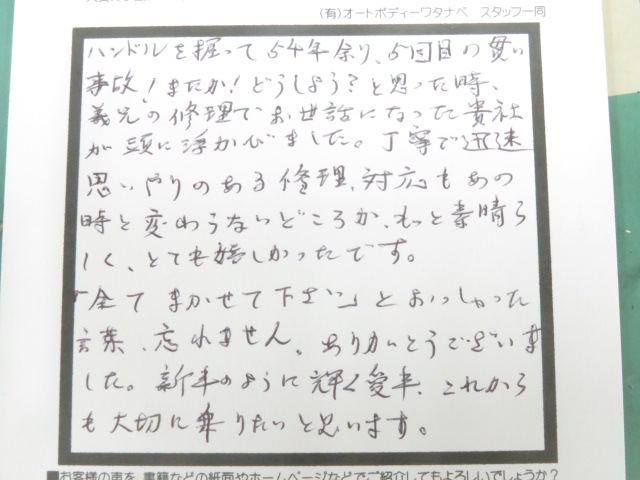 (有)オートボディーワタナベ スタッフ一同
ハンドルを握って54年余り、5回目の貰い
事故!またか!どうしよう?と思った時、
義兄の修理でお世話になった貴社
が頭に浮かびました。丁寧で迅速
思いやりのある修理、対応もあの
時と変わらないどころか、もっと素晴ら
しく、とても嬉しかったです。
「全てまかせて下さい」とおっしゃった
言葉、忘れません。ありがとうございま
した。新車のように輝く愛車、これから
も大切に乗りたいと思います。
■お客様の声を、書籍などの紙面やホームページなどでご紹介してもよろしいでしょうか?